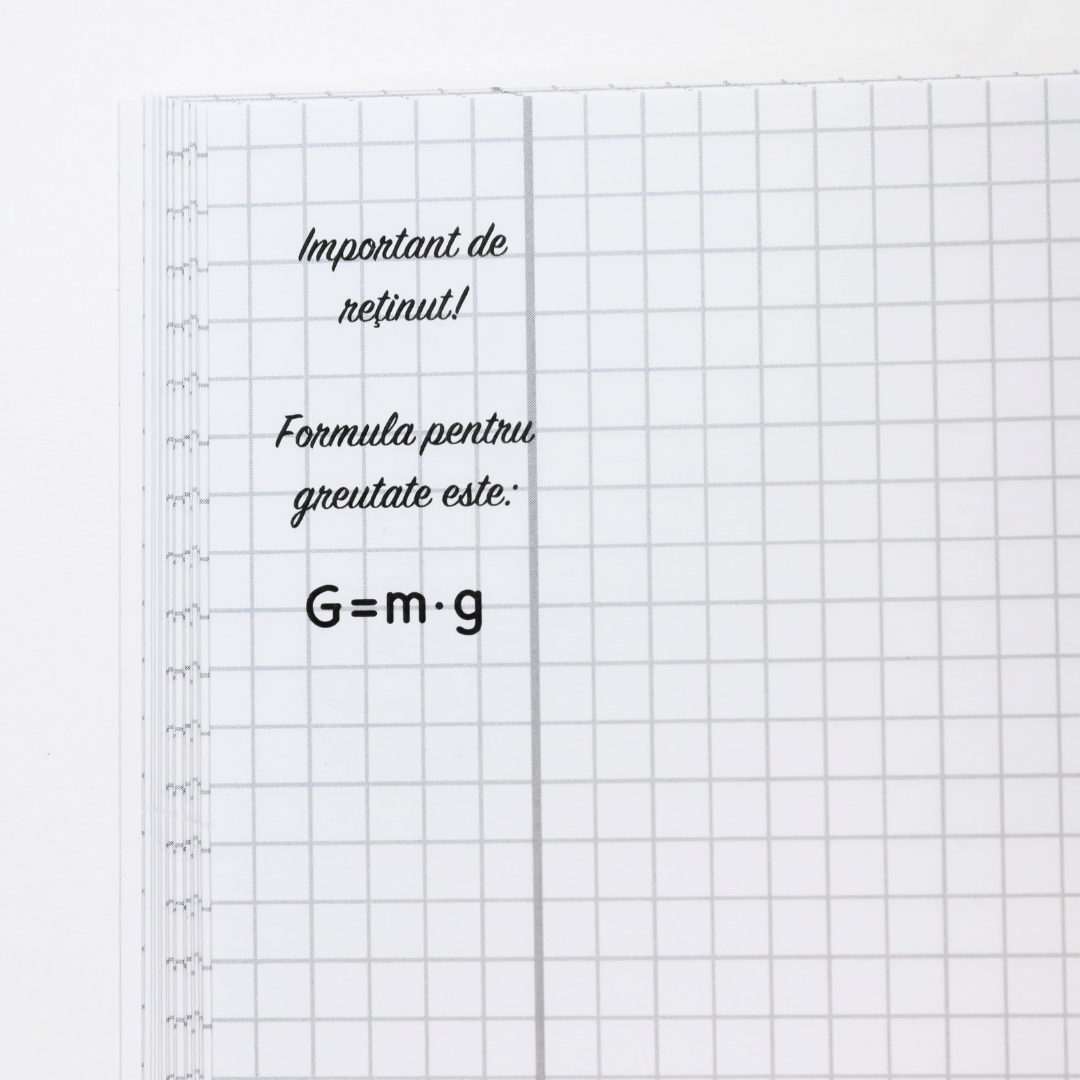 Important de
reţinut!
Formula pentru
greutate este:
G=m·g